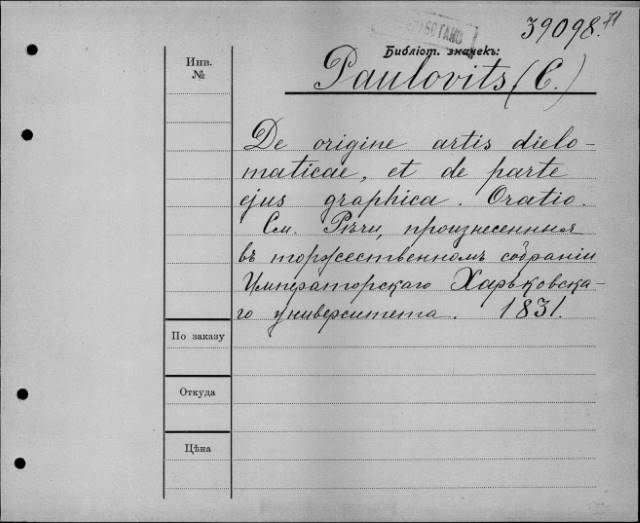 39098.71
Библіот. значекъ:
Paulovits (C.)
Инв.
№
De origine artis dielo-
maticae, et de parte
ejus graphica. Oratio.
См. Рѣчи, произнесенныя
въ торжественномъ собраніи
Императорскаго Харьковска-
го университета. 1831.
По заказу
Откуда
Цѣна